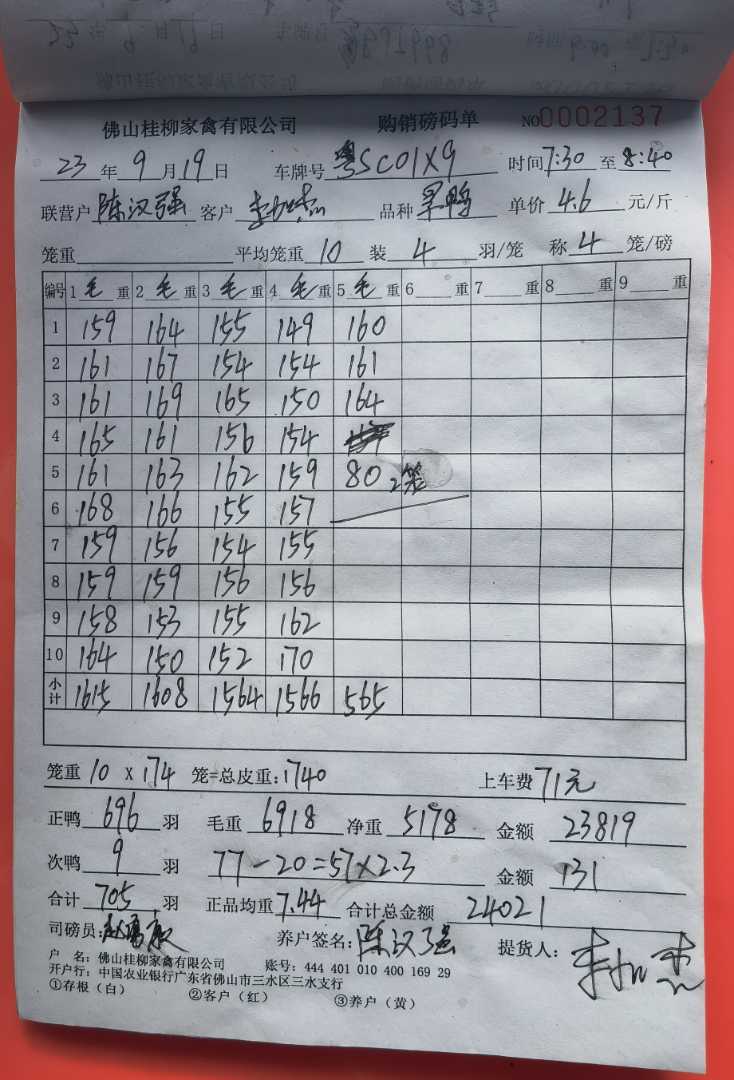 佛山桂柳家禽有限公司 购销磅码单 NO0002137
23年9月19日 车牌号粤SC01X9 时间7:30至8:40
联营户陈汉强 客户 品种黑鸭 单价4.6元/斤
笼重 平均笼重10 装4羽/笼 称4笼/磅
编号 1毛重 2毛重 3毛重 4毛重 5毛重 6重 7重 8重 9重
1 159 164 155 149 160
2 161 167 154 154 161
3 161 169 165 150 164
4 165 161 156 154
5 161 163 162 159 80 2笼
6 168 166 155 157
7 159 156 154 155
8 159 159 156 156
9 158 153 155 162
10 164 150 152 170
小计 1615 1608 1564 1566 565
笼重10X174笼=总皮重:1740 上车费71元
正鸭696羽 毛重6918 净重5178 金额23819
次鸭9羽 77-20=57×2.3 金额131
合计705羽 正品均重7.44 合计总金额24021
司磅员: 养户签名:陈汉强 提货人:
户 名:佛山桂柳家禽有限公司 账号:444 401 010 400 169 29
开户行:中国农业银行广东省佛山市三水区三水支行
①存根(白) ②客户(红) ③养户(黄)